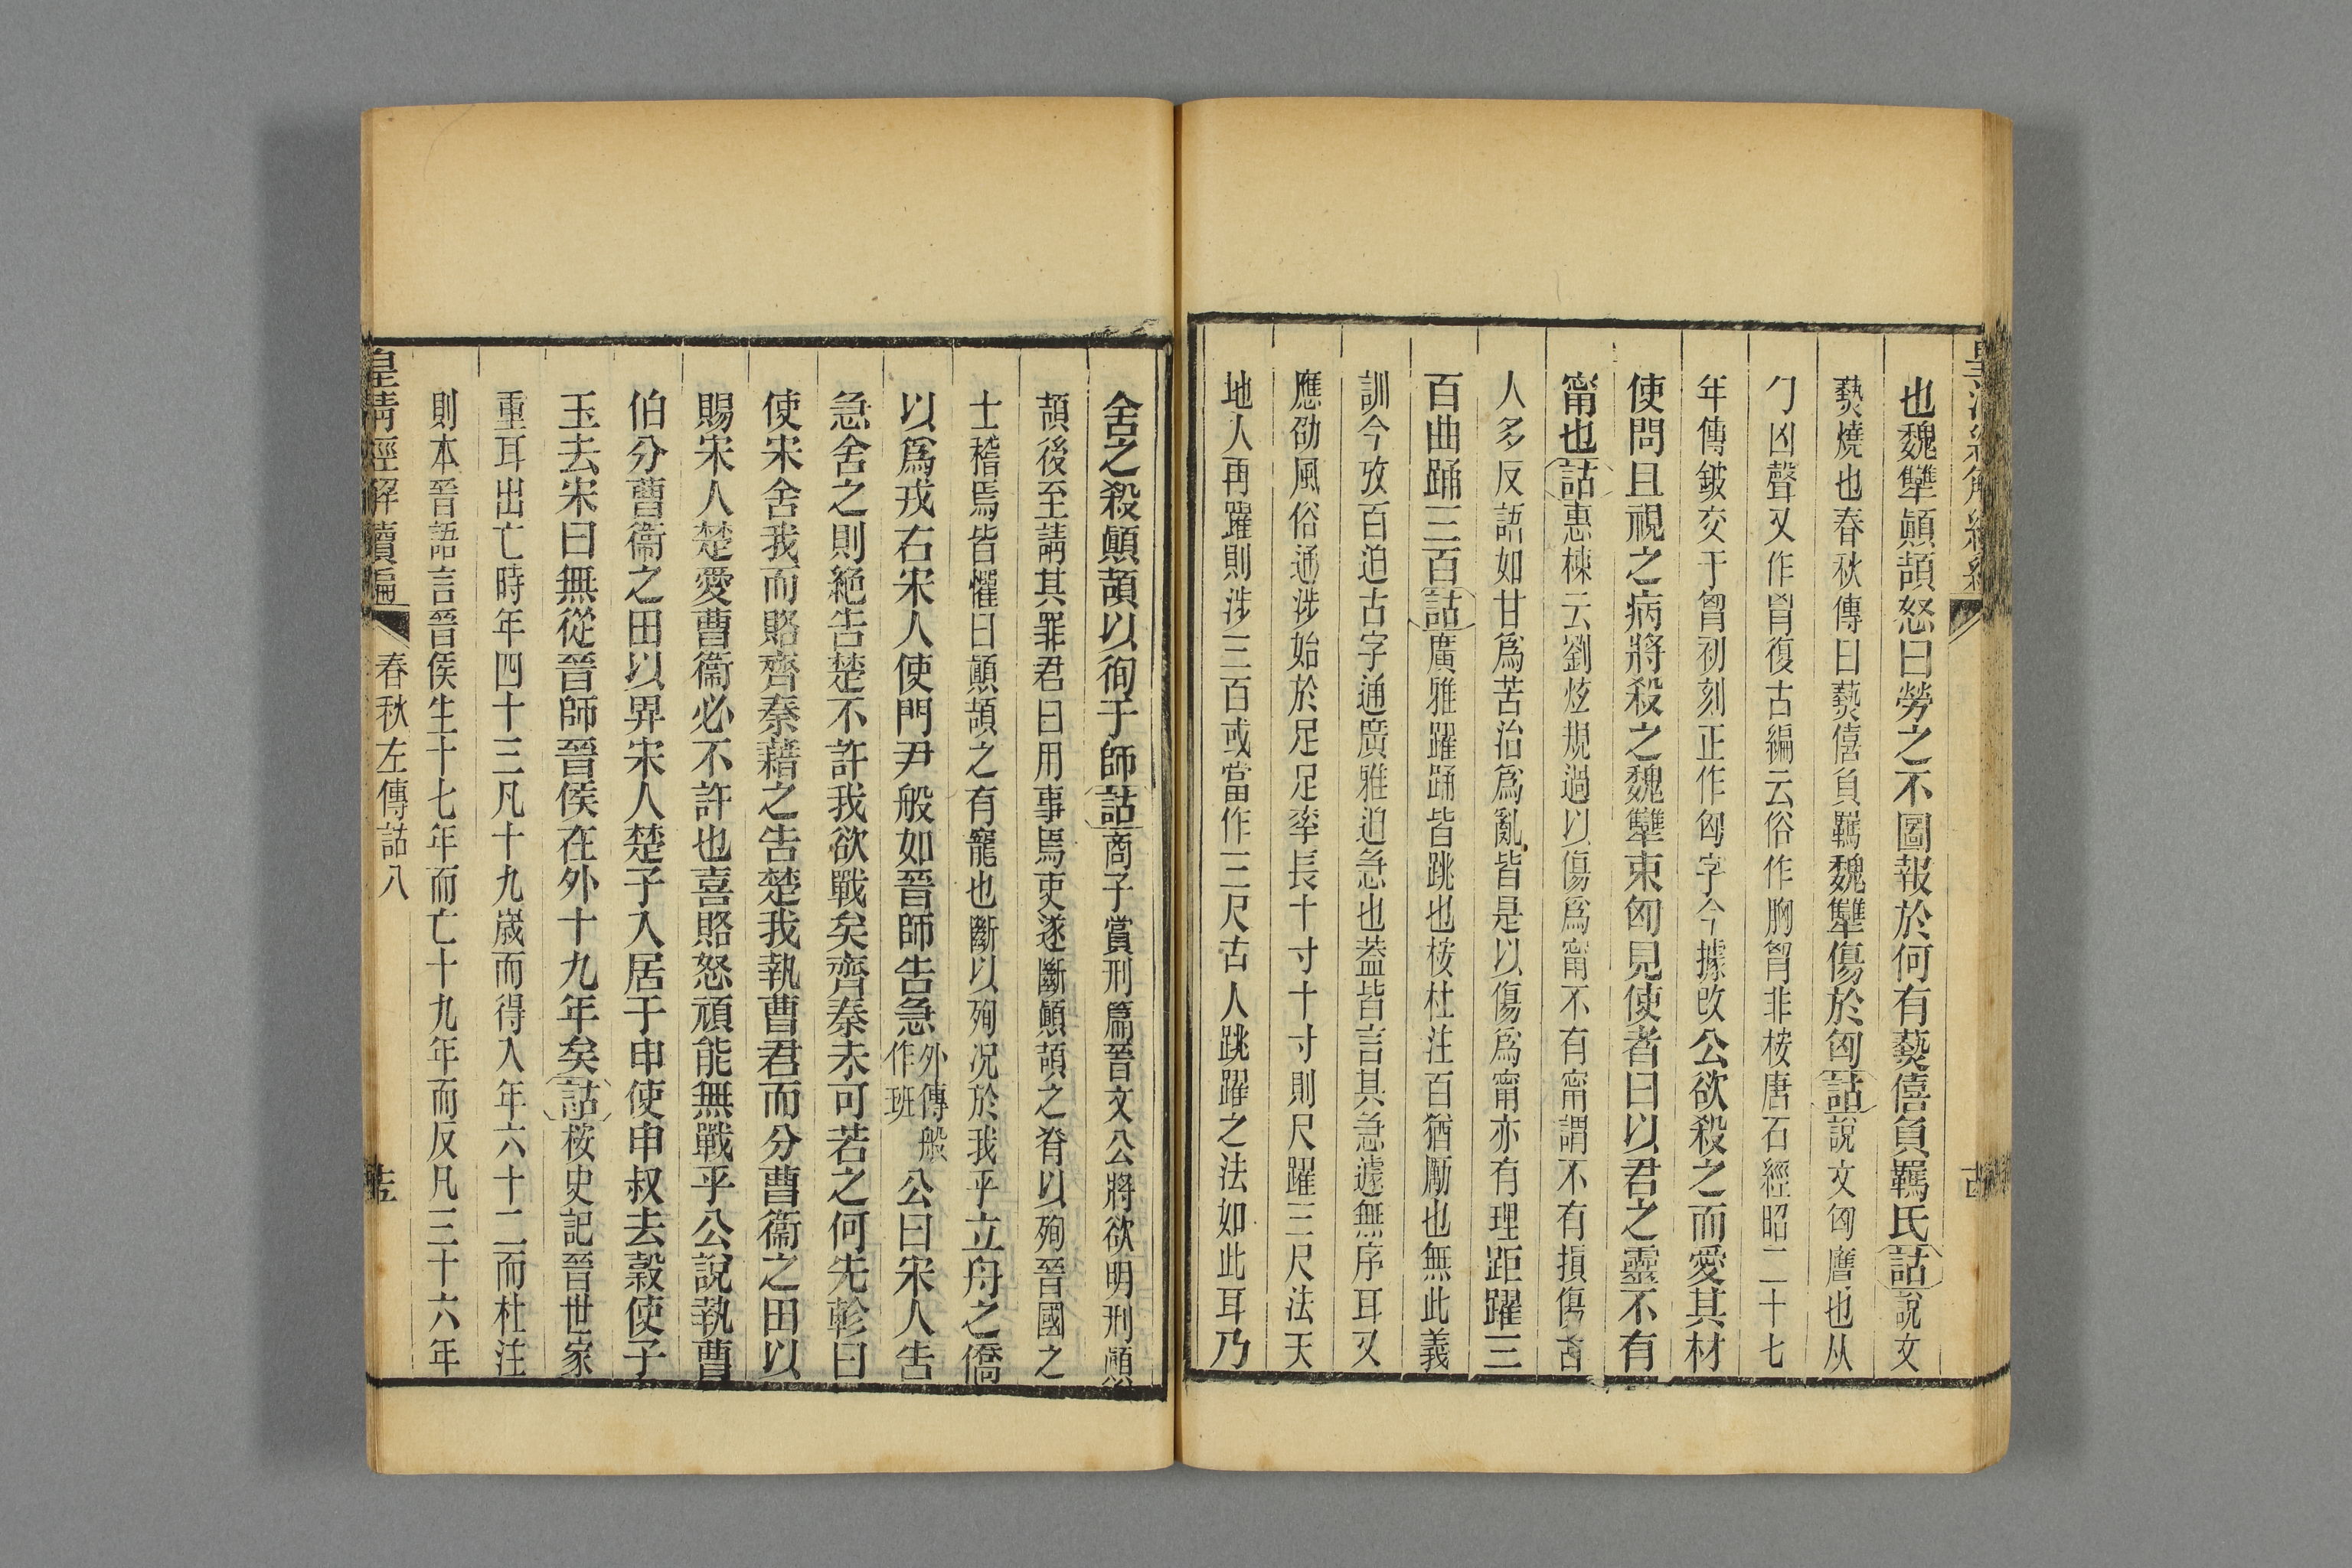 也魏犫顛頡怒曰勞之不圖報於何有爇僖負羈氏詁說文
爇燒也春秋傳曰爇僖負羈魏犫傷於匈詁說文匈膺也从
勹凶聲又作胷復古編云俗作胸胷非桉唐石經昭二十七
年傳鈹交于胷初刻正作匈字今據改公欲殺之而愛其材
使問且視之病將殺之魏犫束匈見使者曰以君之靈不有
甯也詁惠棟云劉炫規過以傷爲甯不有甯謂不有損傷古
人多反語如甘爲苦治爲亂皆是以傷爲甯亦有理距躍三
百曲踊三百詁廣雅躍踊皆跳也桉杜注百猶勵也無此義
訓今攷百迫古字通廣雅迫急也葢皆言其急遽無序耳又
應劭風俗通涉始於足足率長十寸十寸則尺躍三尺法天
地人再躍則涉三百或當作三尺古人跳躍之法如此耳乃
舍之殺顛頡以徇于師詁商子賞刑篇晉文公將欲明刑顛
頡後至請其罪君曰用事焉吏遂斷顛頡之脊以殉晉國之
士稽焉皆懼曰顛頡之有寵也斷以殉况於我乎立舟之僑
以爲戎右宋人使門尹般如晉師告急外傳般作班公曰宋人告
急舍之則絕告楚不許我欲戰矣齊秦未可若之何先軫曰
使宋舍我而賂齊秦藉之告楚我執曹君而分曹衞之田以
賜宋人楚愛曹衞必不許也喜賂怒頑能無戰乎公說執曹
伯分曹衞之田以畀宋人楚子入居于申使申叔去穀使子
玉去宋曰無從晉師晉侯在外十九年矣詁桉史記晉世家
重耳出亡時年四十三凡十九歲而得入年六十二而杜注
則本晉語言晉侯生十七年而亡十九年而反凡三十六年
皇淸經解續編 春秋左傳詁八